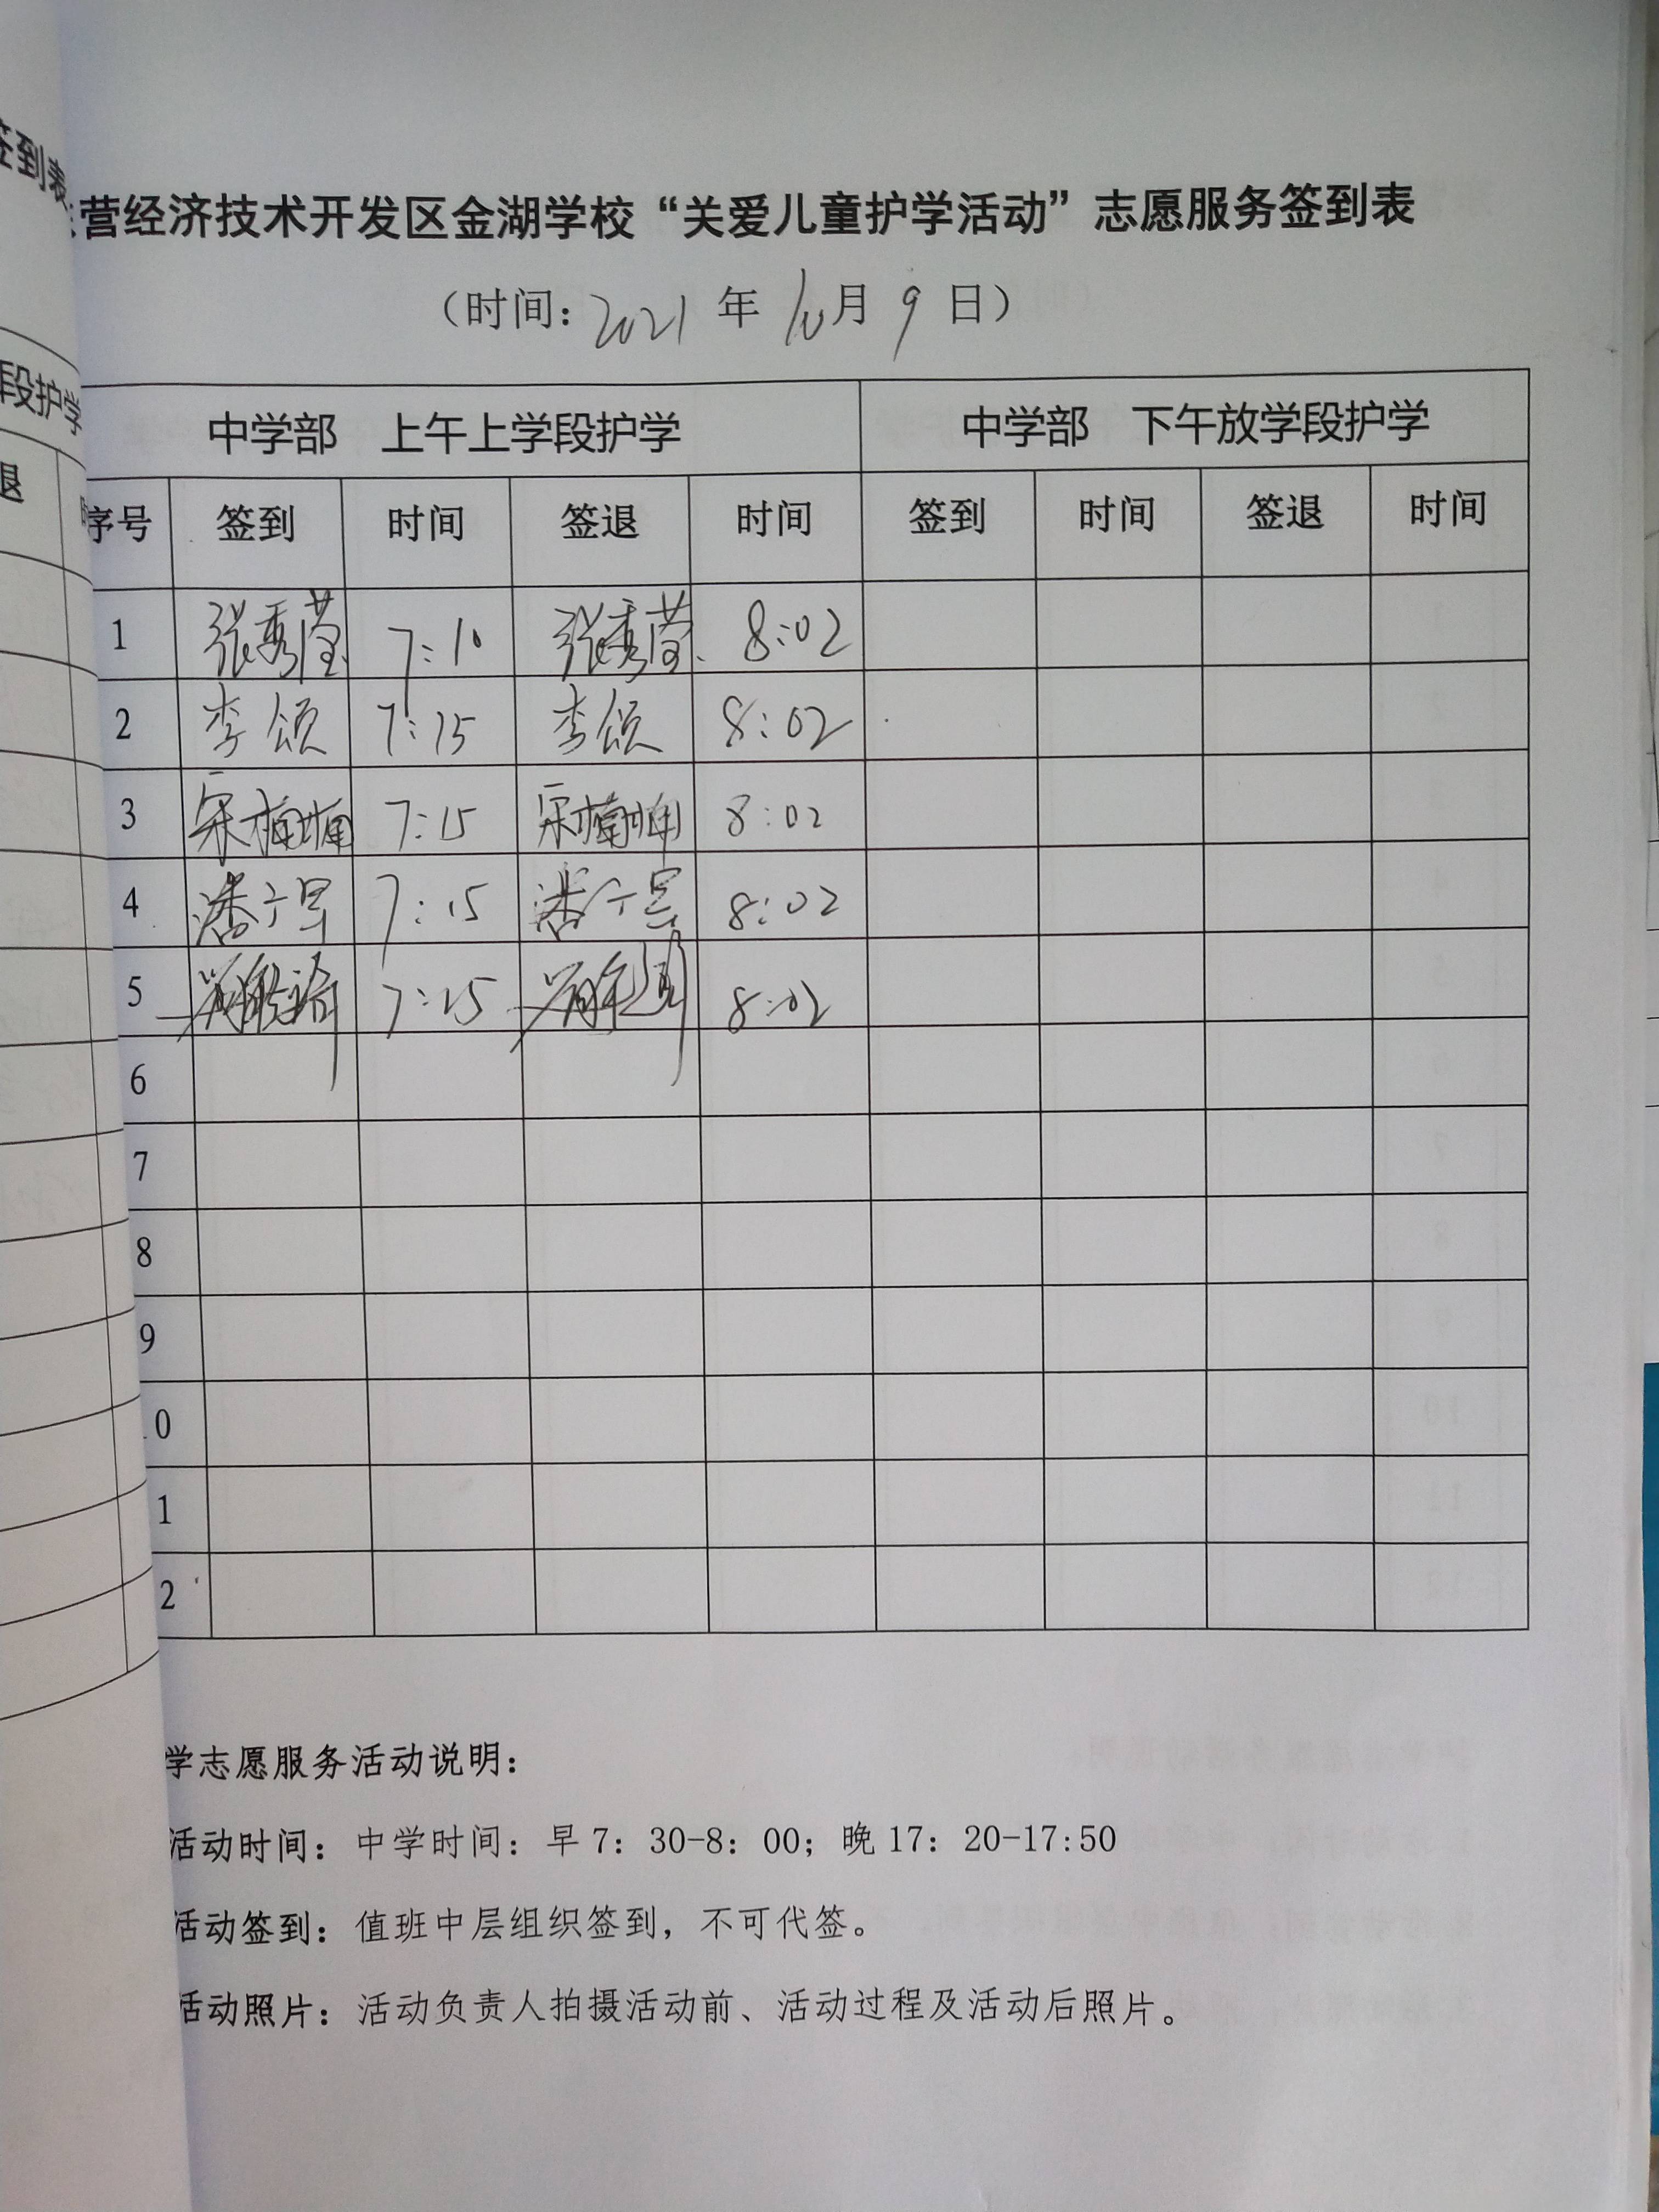 签到表
营经济技术开发区金湖学校“关爱儿童护学活动”志愿服务签到表
（时间：2021 年 10月 9 日）
段护学
退
中学部 上午上学段护学 中学部 下午放学段护学
序号 签到 时间 签退 时间 签到 时间 签退 时间
1 张秀莹 7:10 张秀莹 8:02
2 李颂 7:15 李颂 8:02
3 宋楠楠 7:15 宋楠楠 8:02
4 潘 7:15 潘 8:02
5 7:15 8:02
6
7
8
9
0
1
2
学志愿服务活动说明：
活动时间：中学时间：早 7：30-8：00；晚 17：20-17:50
活动签到：值班中层组织签到，不可代签。
活动照片：活动负责人拍摄活动前、活动过程及活动后照片。